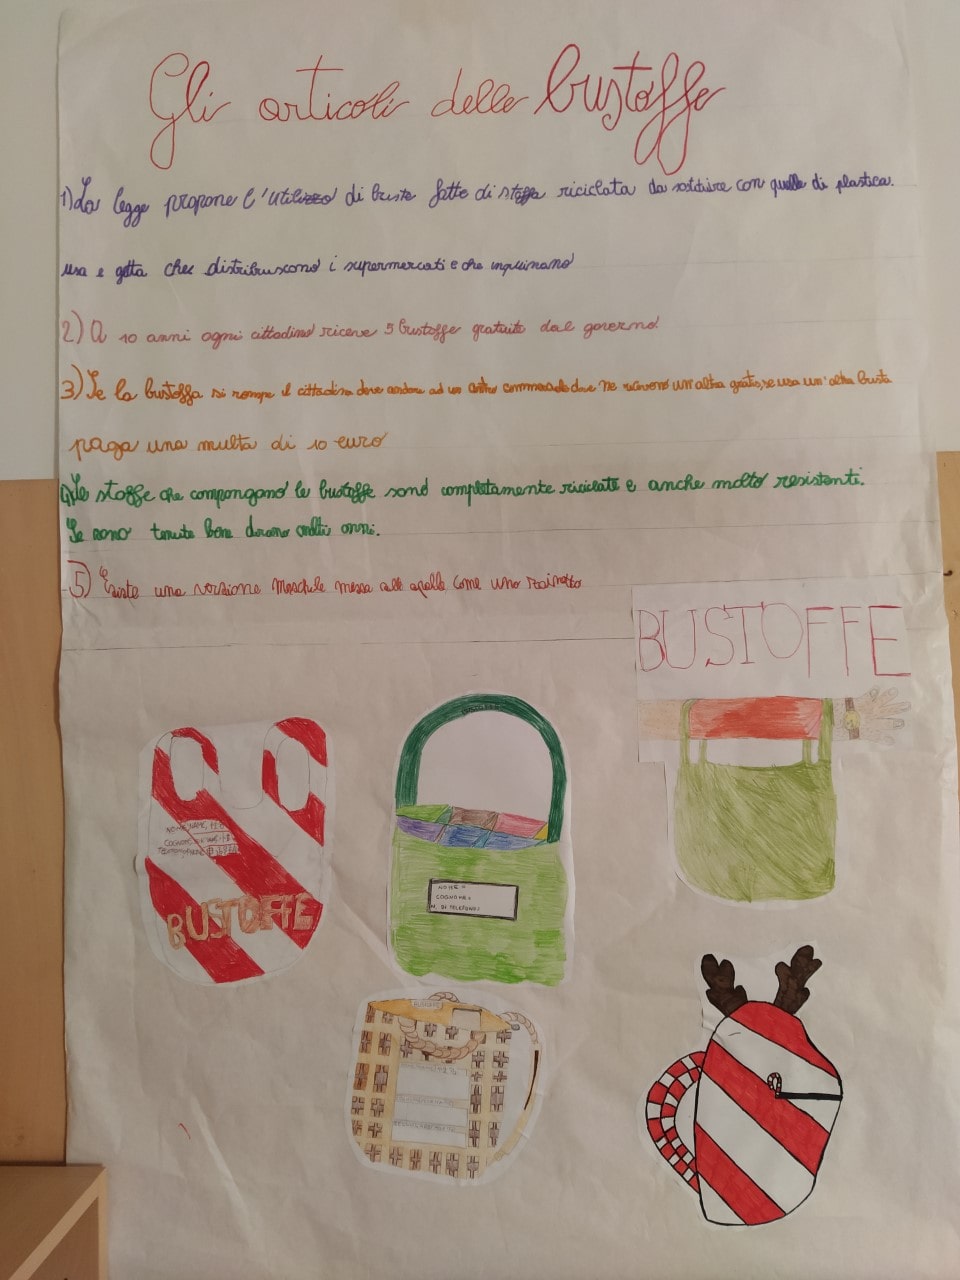 Gli articoli delle bustoffe
1) La legge propone l'utilizzo di buste fatte di stoffa riciclata da sostituire con quelle di plastica.
usa e getta che distribuscono i supermercati e che inquinano
2) A 10 anni ogni cittadino riceve 5 bustoffe gratuite dal governo.
3) Se la bustoffa si rompe il cittadino deve andare ad un centro commerciale dove ne ricevono un'altra gratis, se usa un'altra busta
paga una multa di 10 euro
4) Le stoffe che compongano le bustoffe sono completamente riciclate e anche molto resistenti.
Se sono tenute bene durano molti anni.
5) Esiste una versione maschile messa alle spalle come uno zainetto
BUSTOFFE
NOME/NAME/
COGNOME
BUSTOFFE
NOME:
COGNOME:
N. DI TELEFONO:
BUSTOFFE